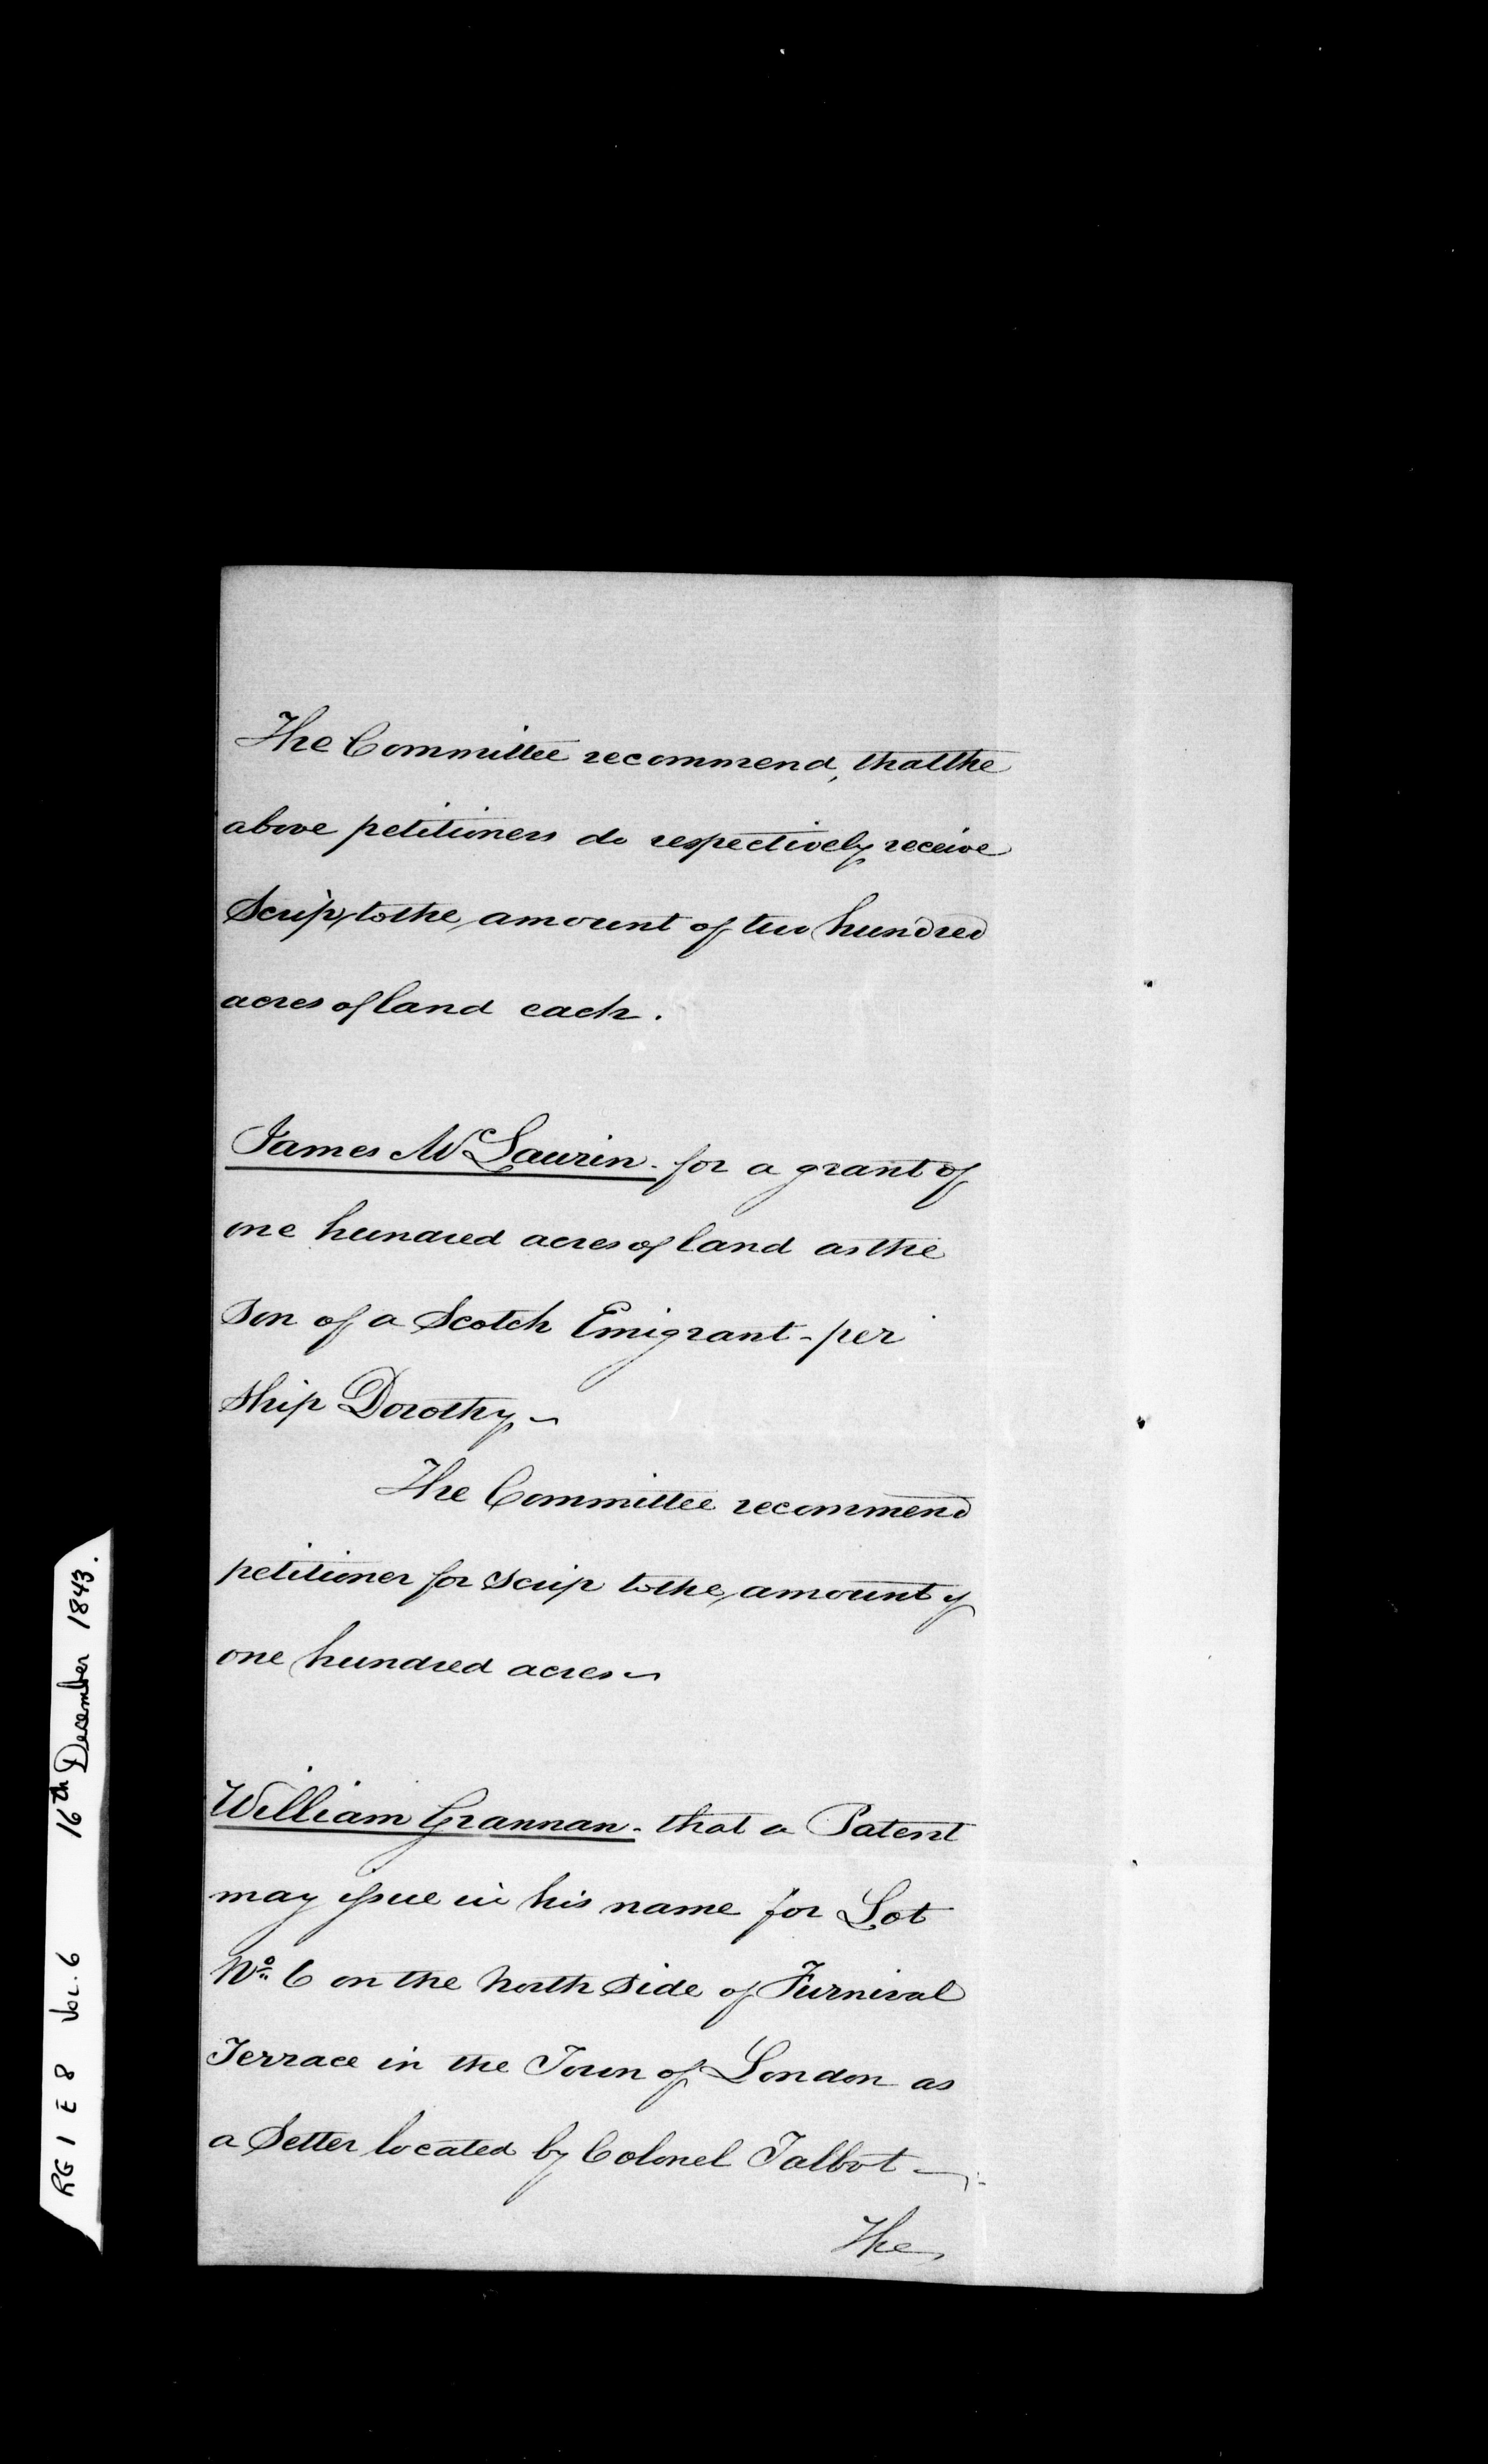 The Committee recommend, that the
above petitioners do respectively receive
Scrip, to the amount of two hundred
acres of land each.
James McLaurin - for a grant of
one hundred acres of land as the
Son of a Scotch Emigrant - per
Ship Dorothy ~
The Committee recommend
petitioner for scrip to the amount of
one hundred acres ~
William Grannan - that a Patent
may issue in his name for Lot
No. 6 on the North side of Furnival
Terrace in the Town of London as
a Setter located by Colonel Talbot —
The
RG 1 E 8 Vol. 6 16th December 1843.